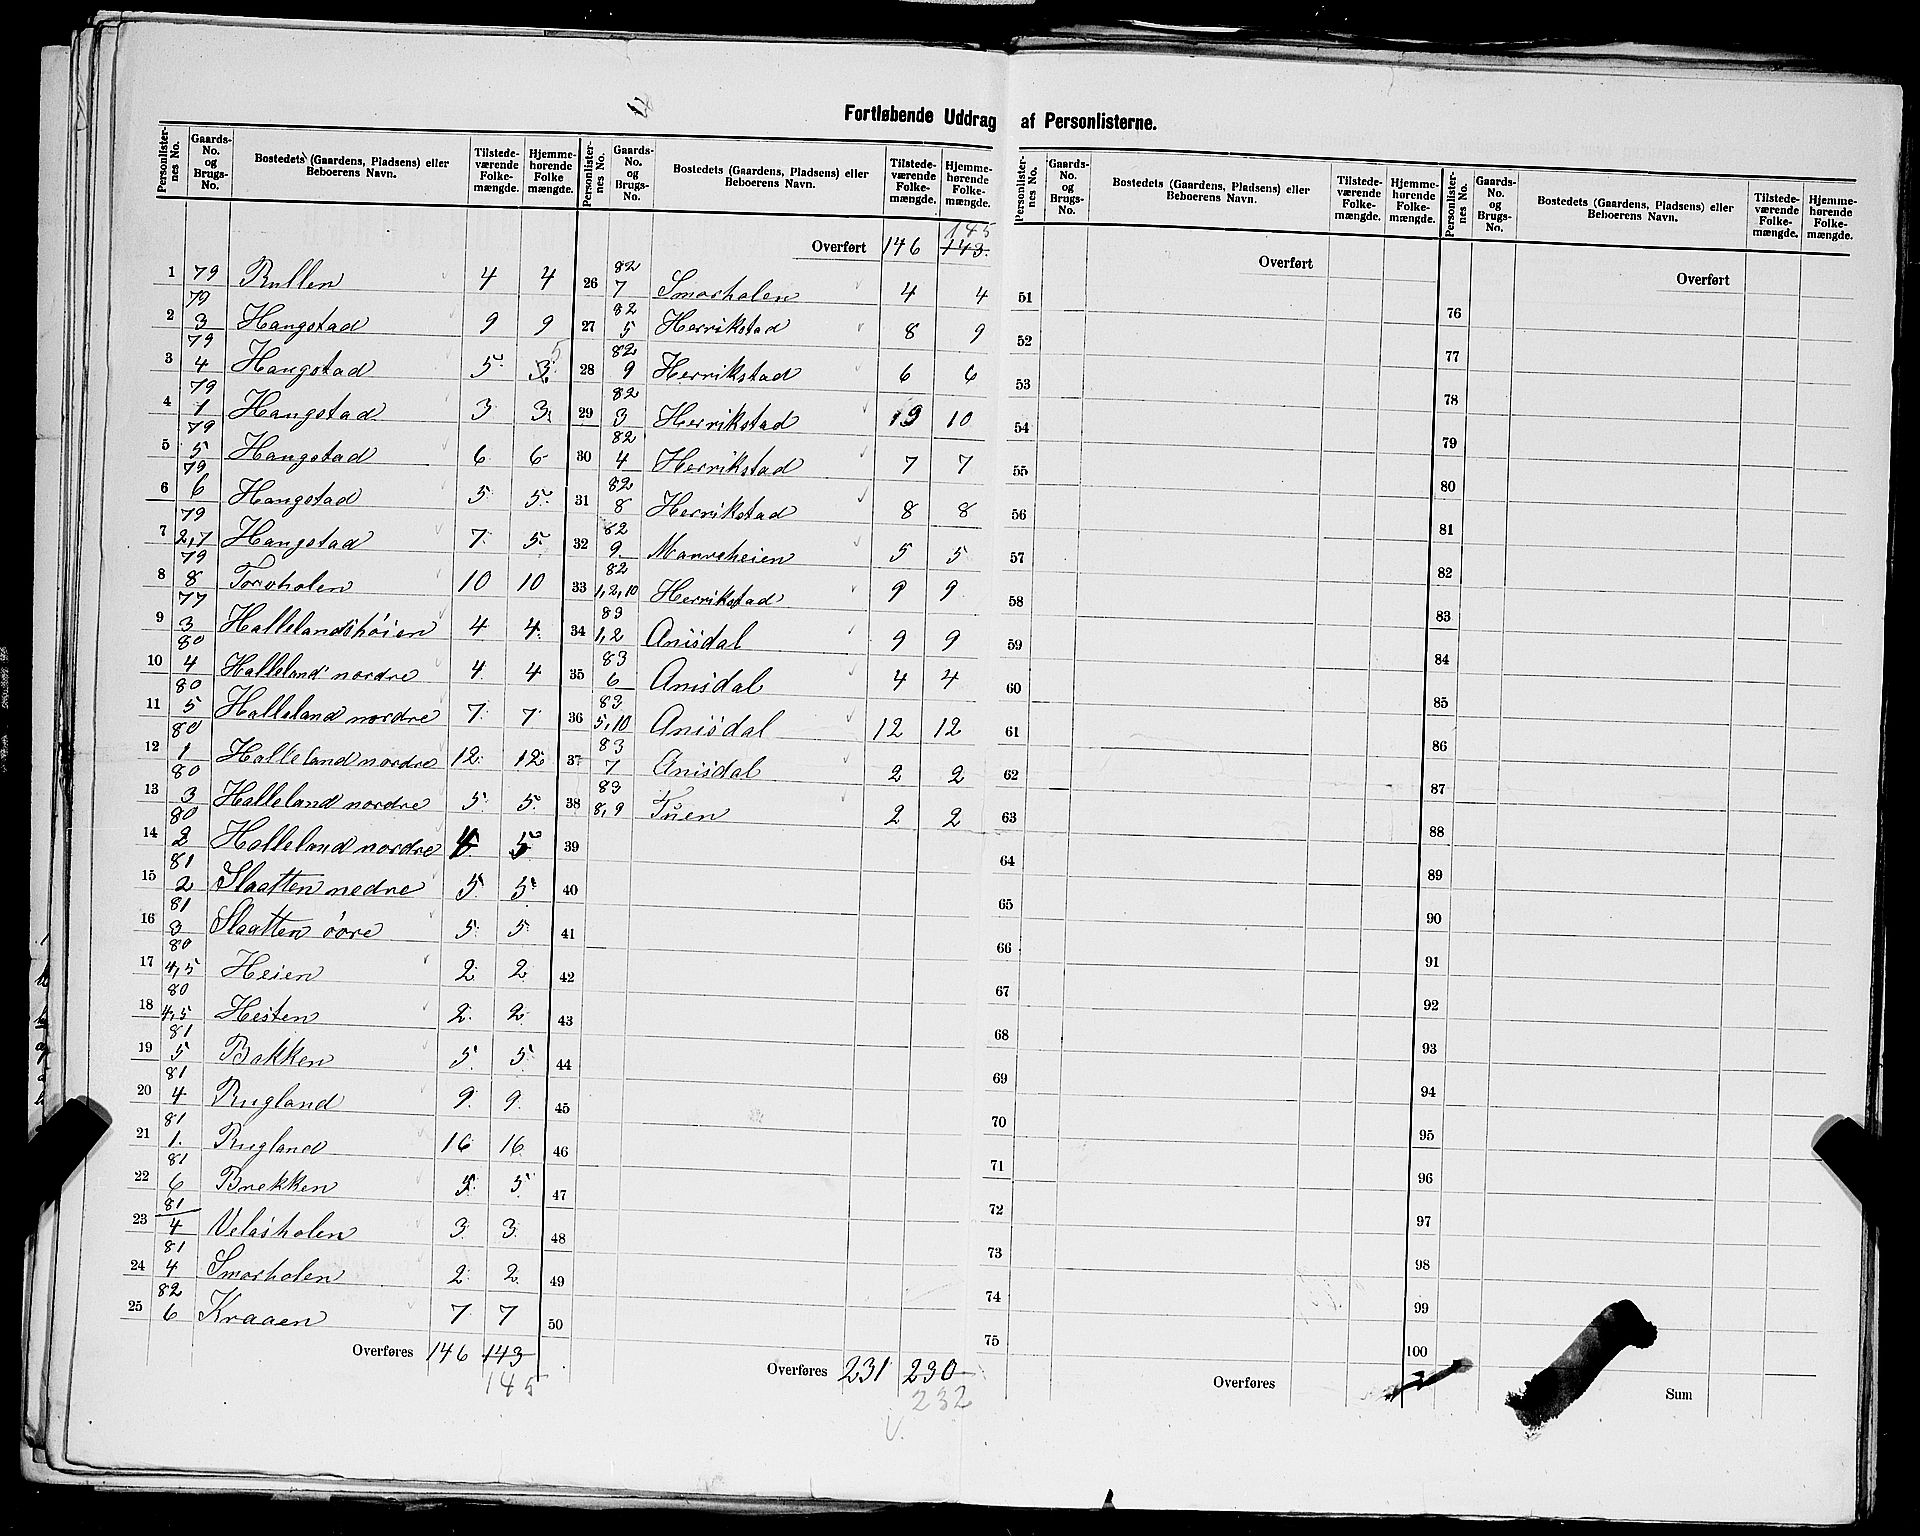 Fortløbende Uddrag af Personlisterne.
Personlister-nes No. Gaards-No. og Brugs-No. Bostedets (Gaardens, Pladsens) eller Beboerens Navn. Tilstede-værende Folke-mængde. Hjemme-hørende Folke mængde.
1 79 Rullen 4 4
2 79 3 Hangstad 9 9
3 79 4 Hangstad 5 3 5
4 79 1 Hangstad 3 3
5 79 5 Hangstad 6 6
6 79 6 Hangstad 5 5
7 79 2,7 Hangstad 7 5
8 79 8 Torvholen 10 10
9 77 3 Hallelandshöien 4 4
10 80 4 Halleland nordre 4 4
11 80 5 Halleland nordre 7 7
12 80 1 Halleland nordre 12 12
13 80 3 Halleland nordre 5 5
14 80 2 Halleland nordre 5
15 81 2 Slaatten nedre 5 5
16 81 3 Slaatten övre 5 5
17 80 4,5 Heien 2 2
18 80 4,5 Hesten 2 2
19 81 5 Bakken 5 5
20 81 4 Rugland 9 9
21 81 1. Rugland 16 16
22 81 6 Brekken 5 5
23 81 4 Velasholen 3 3
24 81 4 Smorholen 2 2
25 82 6 Kraaen 7 7
Overføres 146 143
145
Personlister-nes No. Gaards-No. og Brugs-No. Bostedets (Gaardens, Pladsens) eller Beboerens Navn. Tilstede-værende Folke-mængde. Hjemme-hørende Folke-mængde.
145
Overført 146 143.
26 82 7 Smorholen 4 4
27 82 5 Herrikstad 8 9
28 82 9 Herrikstad 6 6
29 82 3 Herrikstad 10
30 82 4 Herrikstad 7 7
31 82 8 Herrikstad 8 8
32 82 9 Manreheien 5 5
33 82 1,2,10 Herrikstad 9 9
34 83 1,2 Anisdal 9 9
35 83 6 Anisdal 4 4
36 83 5,10 Anisdal 12 12
37 83 7 Anisdal 2 2
38 83 8,9 Tuen 2 2
39
40
41
42
43
44
45
46
47
48
49
50
Overføres 231 230
232
V.
Personlister-nes No. Gaards-No. og Brugs-No. Bostedets (Gaardens, Pladsens) eller Beboerens Navn. Tilstede-værende Folke-mængde. Hjemme-hørende Folke-mængde.
Overført
51
52
53
54
55
56
57
58
59
60
61
62
63
64
65
66
67
68
69
70
71
72
73
74
75
Overføres
Personlister-nes No. Gaards-No. og Brugs-No. Bostedets (Gaardens, Pladsens) eller Beboerens Navn. Tilstede-værende Folke-mængde. Hjemme-hørende Folke-mængde.
Overført
76
77
78
79
80
81
82
83
84
85
86
87
88
89
90
91
92
93
94
95
96
97
98
99
100
Sum